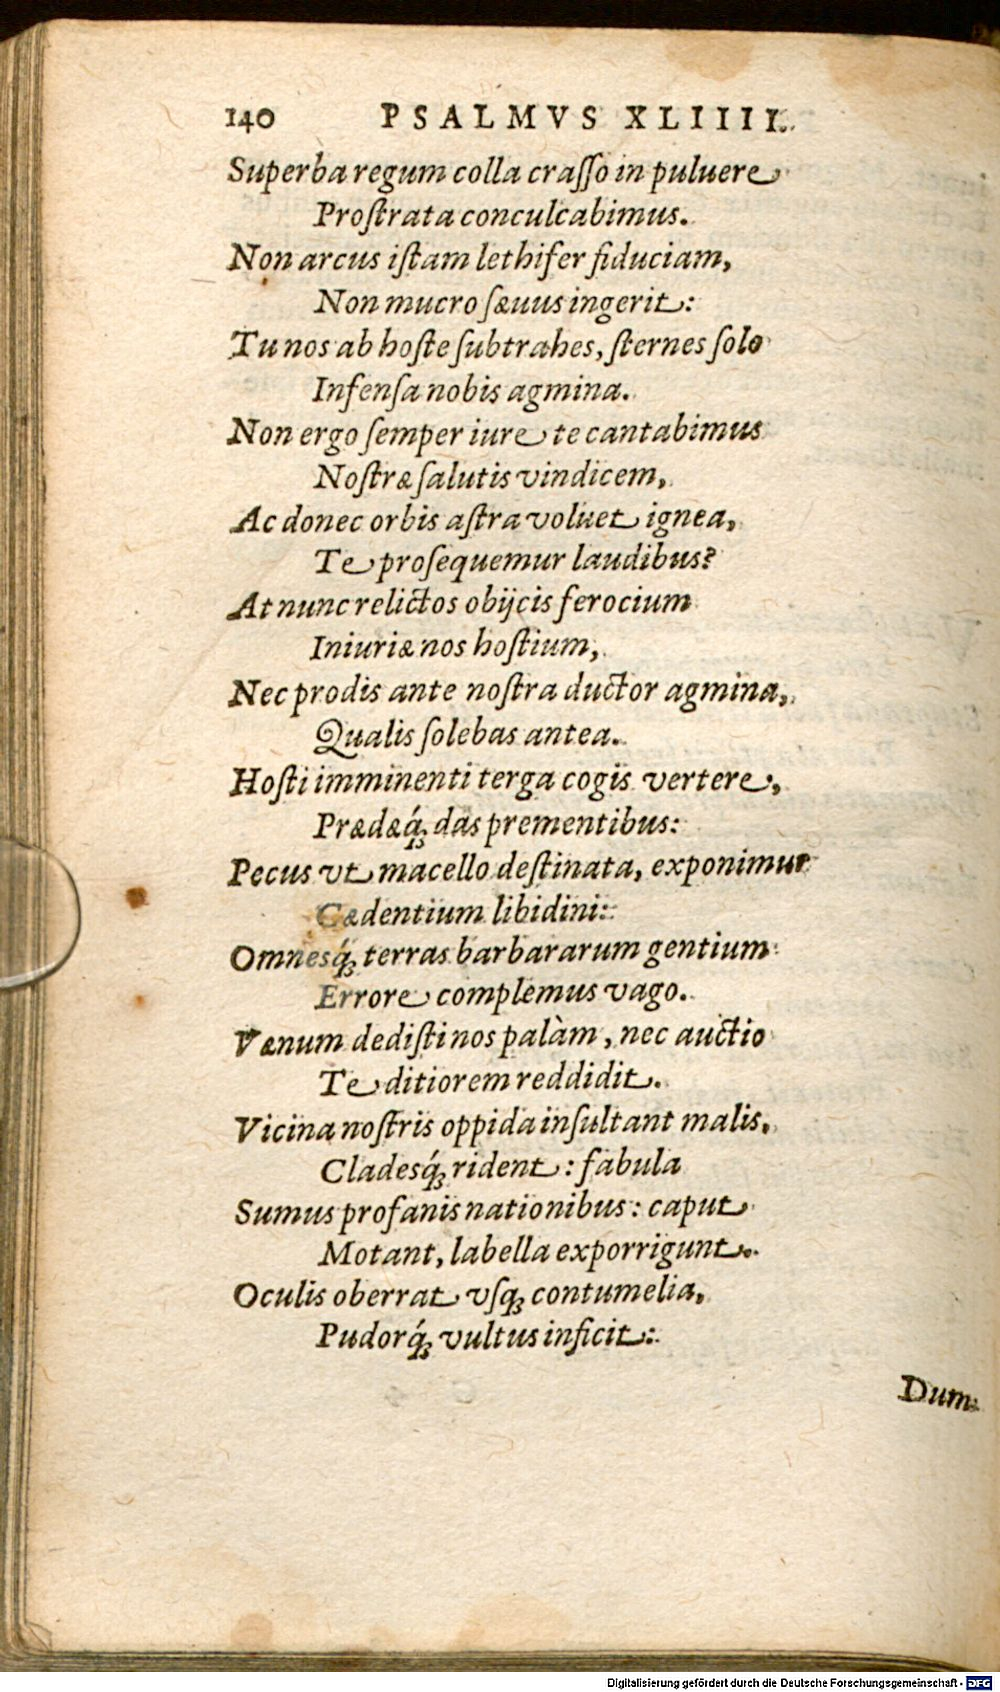 140 PSALMVS XLIIII.
Superba regum colla craſſo in puluere
Proſtrata conculcabimus.
Non arcus iſtam lethifer fiduciam,
Non mucro ſæuus ingerit:
Tu nos ab hoſte ſubtrahes, ſternes ſolo
Infenſa nobis agmina.
Non ergo ſemper iure te cantabimus
Noſtræ ſalutis vindicem,
Ac donec orbis aſtra voluet ignea,
Te proſequemur laudibus?
At nunc relictos obijcis ferocium
Iniuriæ nos hoſtium,
Nec prodis ante noſtra ductor agmina,
Qualis ſolebas antea.
Hoſti imminenti terga cogis vertere,
Prædæq́; das prementibus:
Pecus vt macello deſtinata, exponimur
Cædentium libidini:
Omnesq́; terras barbararum gentium
Errore complemus vago.
Vænum dediſti nos palàm, nec auctio
Te ditiorem reddidit.
Vicina noſtris oppida inſultant malis,
Cladesq́; rident: fabula
Sumus profanis nationibus: caput
Motant, labella exporrigunt.
Oculis oberrat vſq; contumelia,
Pudorq́; vultus inficit:
Dum
Digitalisierung gefördert durch die Deutsche Forschungsgemeinschaft - DFG